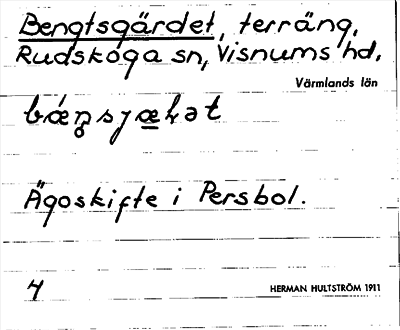 Bengtsgärdet, terräng,
Rudskoga sn, Visnums hd.
Värmlands län
Ägoskifte i Persbol.
4
HERMAN HULTSTRÖM 1911